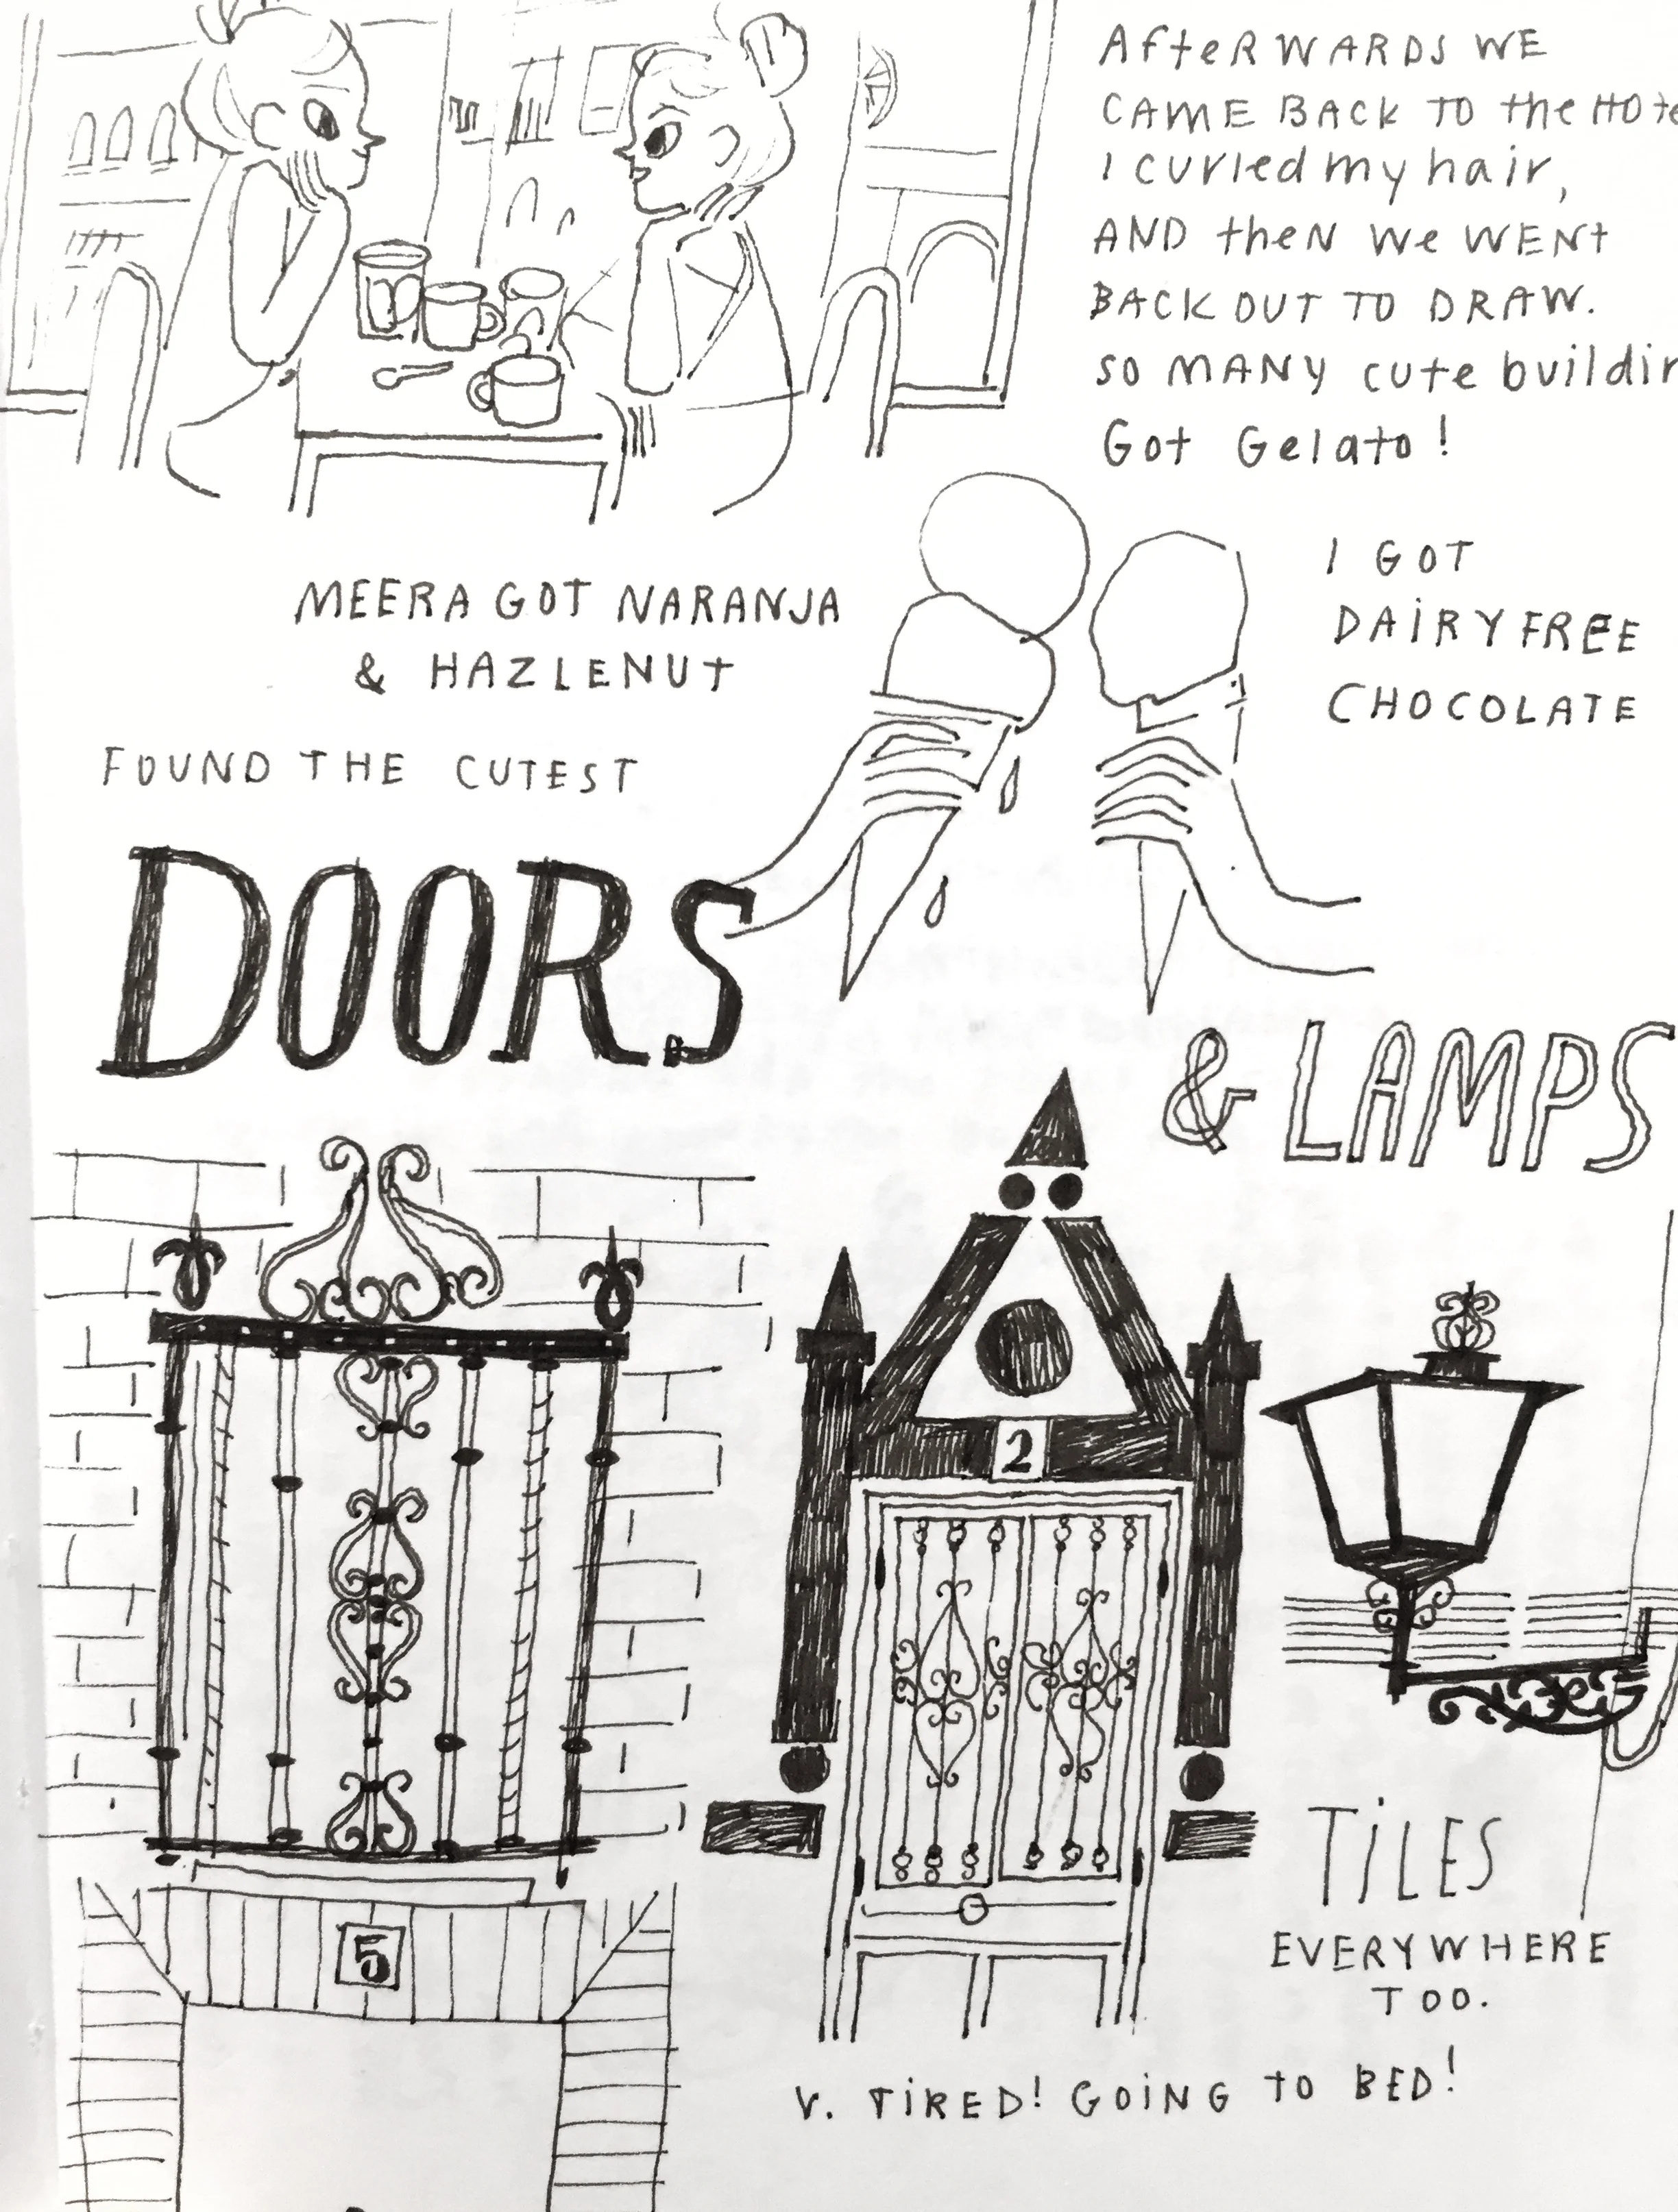 AFTERWARDS WE
CAME BACK TO the HOTE
I curled my hair,
AND theN We WENt
BACK OUT TO DRAW.
SO MANY cute buildin
Got Gelato!
I GOT
DAIRYFREE
CHOCOLATE
MEERA GOT NARANJA
& HAZLENUT
FOUND THE CUTEST
DOORS
& LAMPS
2
5
TiLES
EVERYWHERE
TOO.
V. TIRED! GOING TO BED!